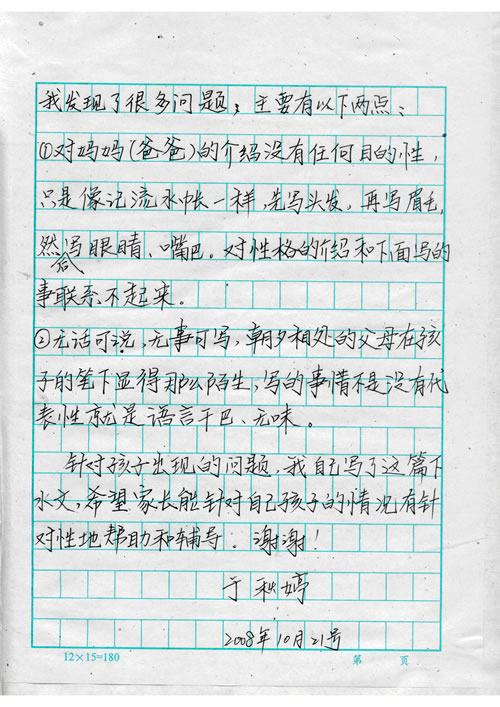 我发现了很多问题，主要有以下两点：
①对妈妈(爸爸)的介绍没有任何目的性，
只是像记流水帐一样，先写头发，再写眉毛，
然后写眼睛、嘴巴。对性格的介绍和下面写的
事联系不起来。
②无话可说，无事可写，朝夕相处的父母在孩
子的笔下显得那么陌生，写的事情不是没有代
表性就是语言干巴、无味。
针对孩子出现的问题，我自己写了这篇下
水文，希望家长能针对自己孩子的情况有针
对性地帮助和辅导．谢谢！
于秋婷
2008年10月21号
12×15=180 第 页